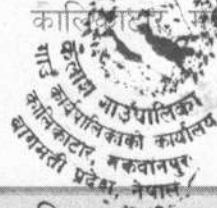 कालिकाटार, म
कैलाश गाउँपालिका
गाउँ कार्यपालिकाको कार्यालय
कालिकाटार, मकवानपुर
बागमती प्रदेश, नेपाल